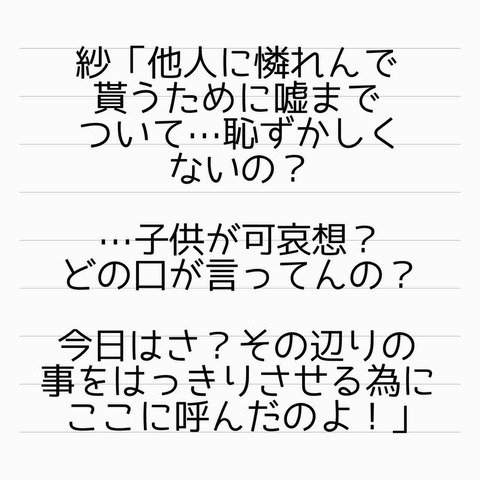 紗「他人に憐れんで
貰うために嘘まで
ついて…恥ずかしく
ないの？
…子供が可哀想？
どの口が言ってんの？
今日はさ？その辺りの
事をはっきりさせる為に
ここに呼んだのよ！」